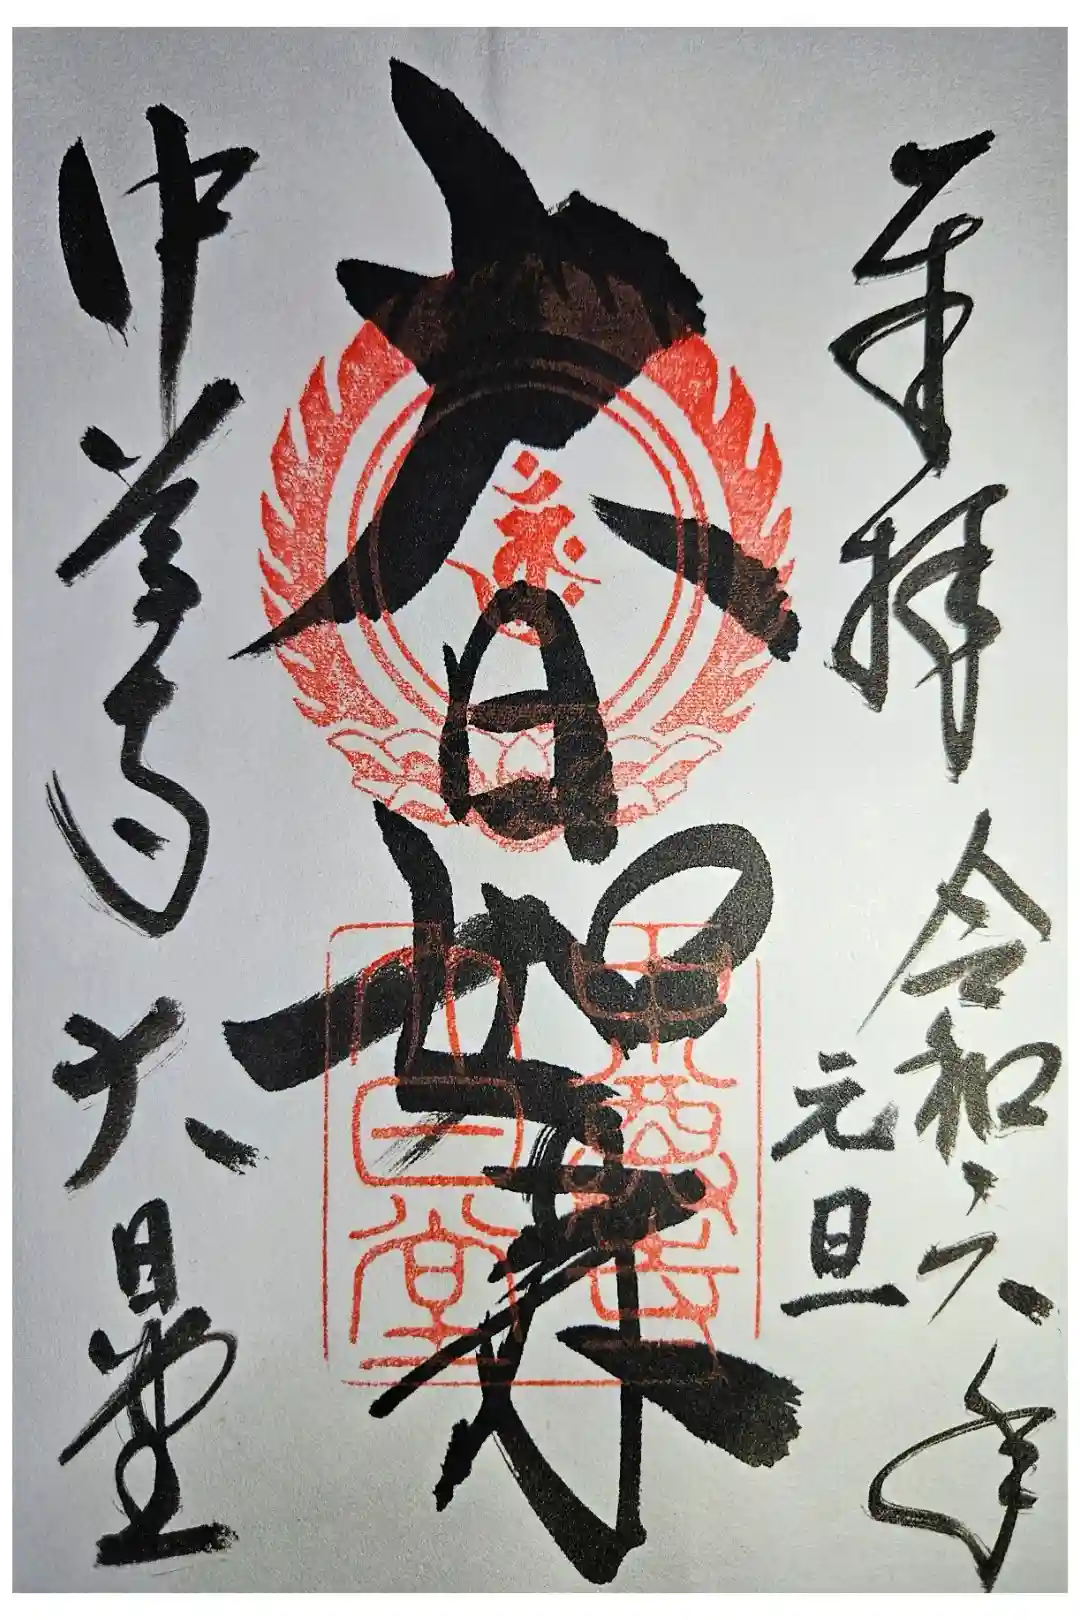 奉拝 令和六年
元旦
大日如来
中尊寺
大日堂
中尊寺大日堂